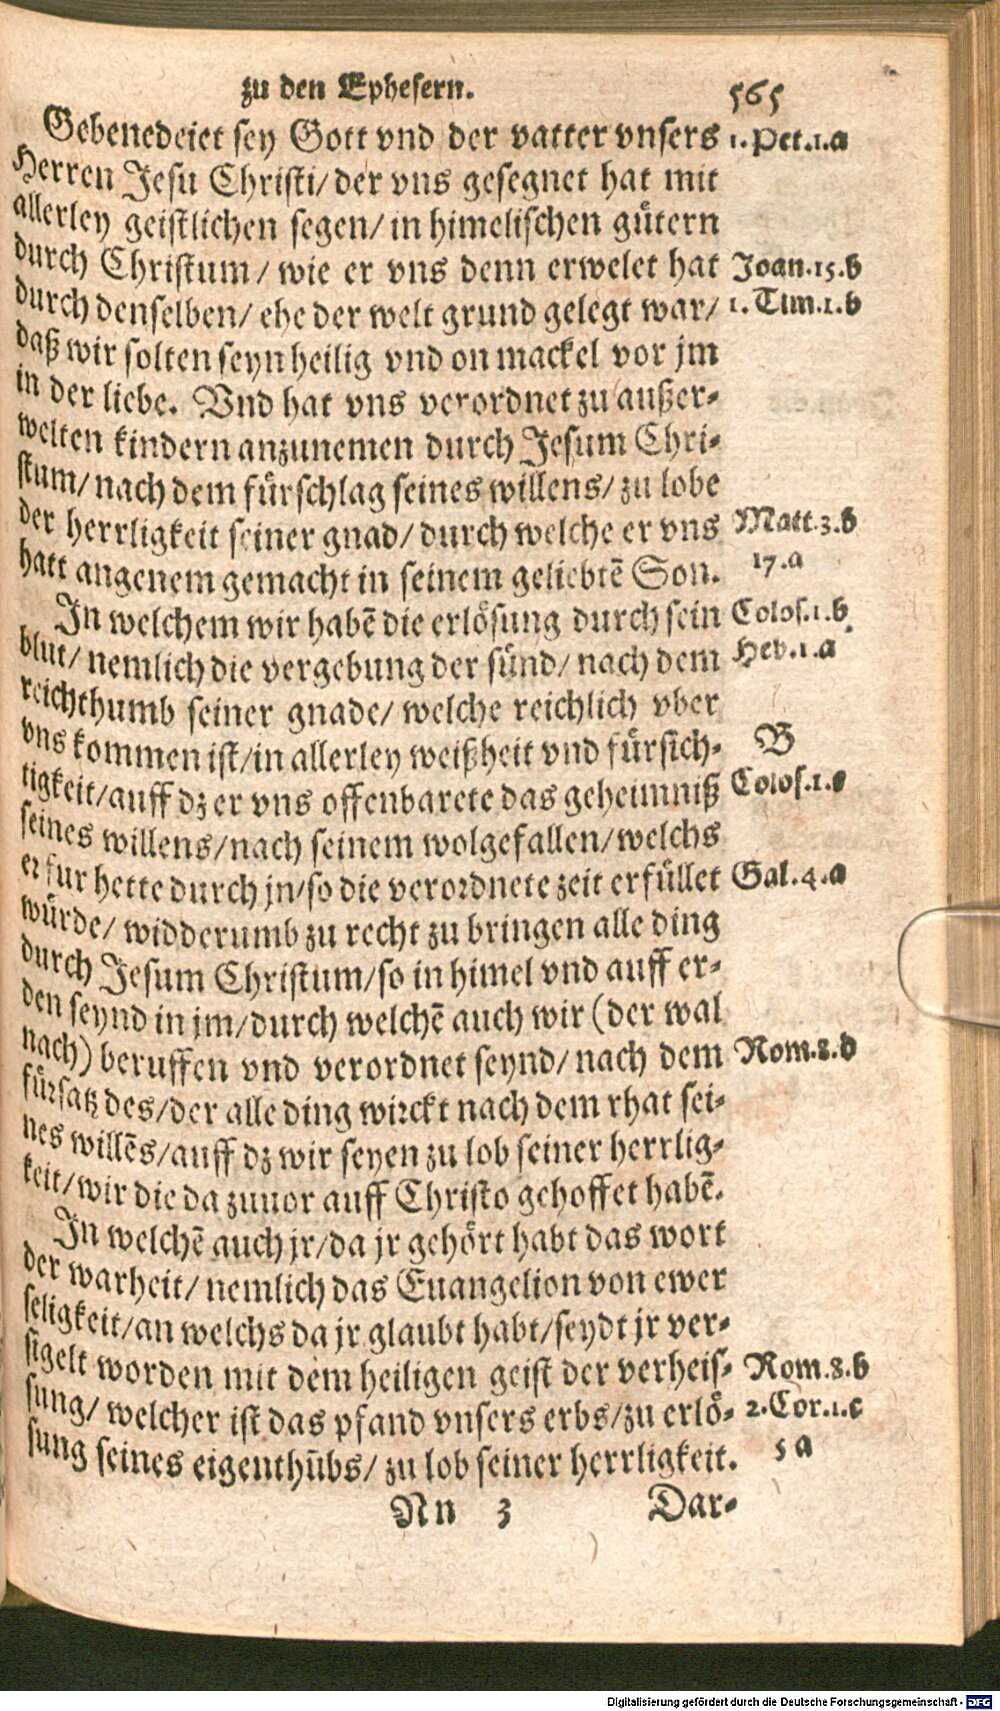 zu den Ephesern. 565
Gebenedeiet sey Gott vnd der vatter vnsers 1. Pet.1.a
Herren Jesu Christi/ der vns gesegnet hat mit
allerley geistlichen segen/ in himelischen gütern
durch Christum/ wie er vns denn erwelet hat Joan.15.b
durch denselben/ ehe der welt grund gelegt war/ 1. Tim.1.b
daß wir solten seyn heilig vnd on mackel vor jm
in der liebe. Vnd hat vns verordnet zu außer-
welten kindern anzunemen durch Jesum Chri-
stum/ nach dem fürschlag seines willens/ zu lobe
der herrligkeit seiner gnad/ durch welche er vns Matt.3.b
hatt angenem gemacht in seinem geliebtē Son. 17.a
In welchem wir habē die erlösung durch sein Colos.1.b
blut/ nemlich die vergebung der sünd/ nach dem Heb.1.a
reichthumb seiner gnade/ welche reichlich vber
vns kommen ist/ in allerley weißheit vnd fürsich- B
tigkeit/ auff dz er vns offenbarete das geheimniß Colos.1.e
seines willens/ nach seinem wolgefallen/ welchs
er fur hette durch jn/ so die verordnete zeit erfüllet Gal.4.a
würde/ widderumb zu recht zu bringen alle ding
durch Jesum Christum/ so in himel vnd auff er-
den seynd in jm/ durch welchē auch wir (der wal
nach) beruffen vnd verordnet seynd/ nach dem Rom.8.d
fürsatz des/ der alle ding wirckt nach dem rhat sei-
nes willēs/ auff dz wir seyen zu lob seiner herrlig-
keit/ wir die da zuuor auff Christo gehoffet habē.
In welchē auch jr/ da jr gehört habt das wort
der warheit/ nemlich das Euangelion von ewer
seligkeit/ an welchs da jr glaubt habt/ seydt jr ver-
sigelt worden mit dem heiligen geist der verheis- Rom.8.b
sung/ welcher ist das pfand vnsers erbs/ zu erlö- 2.Cor.1.c
sung seines eigenthūbs/ zu lob seiner herrligkeit. 5 a
Nn 3 Dar-
Digitalisierung gefördert durch die Deutsche Forschungsgemeinschaft - DFG